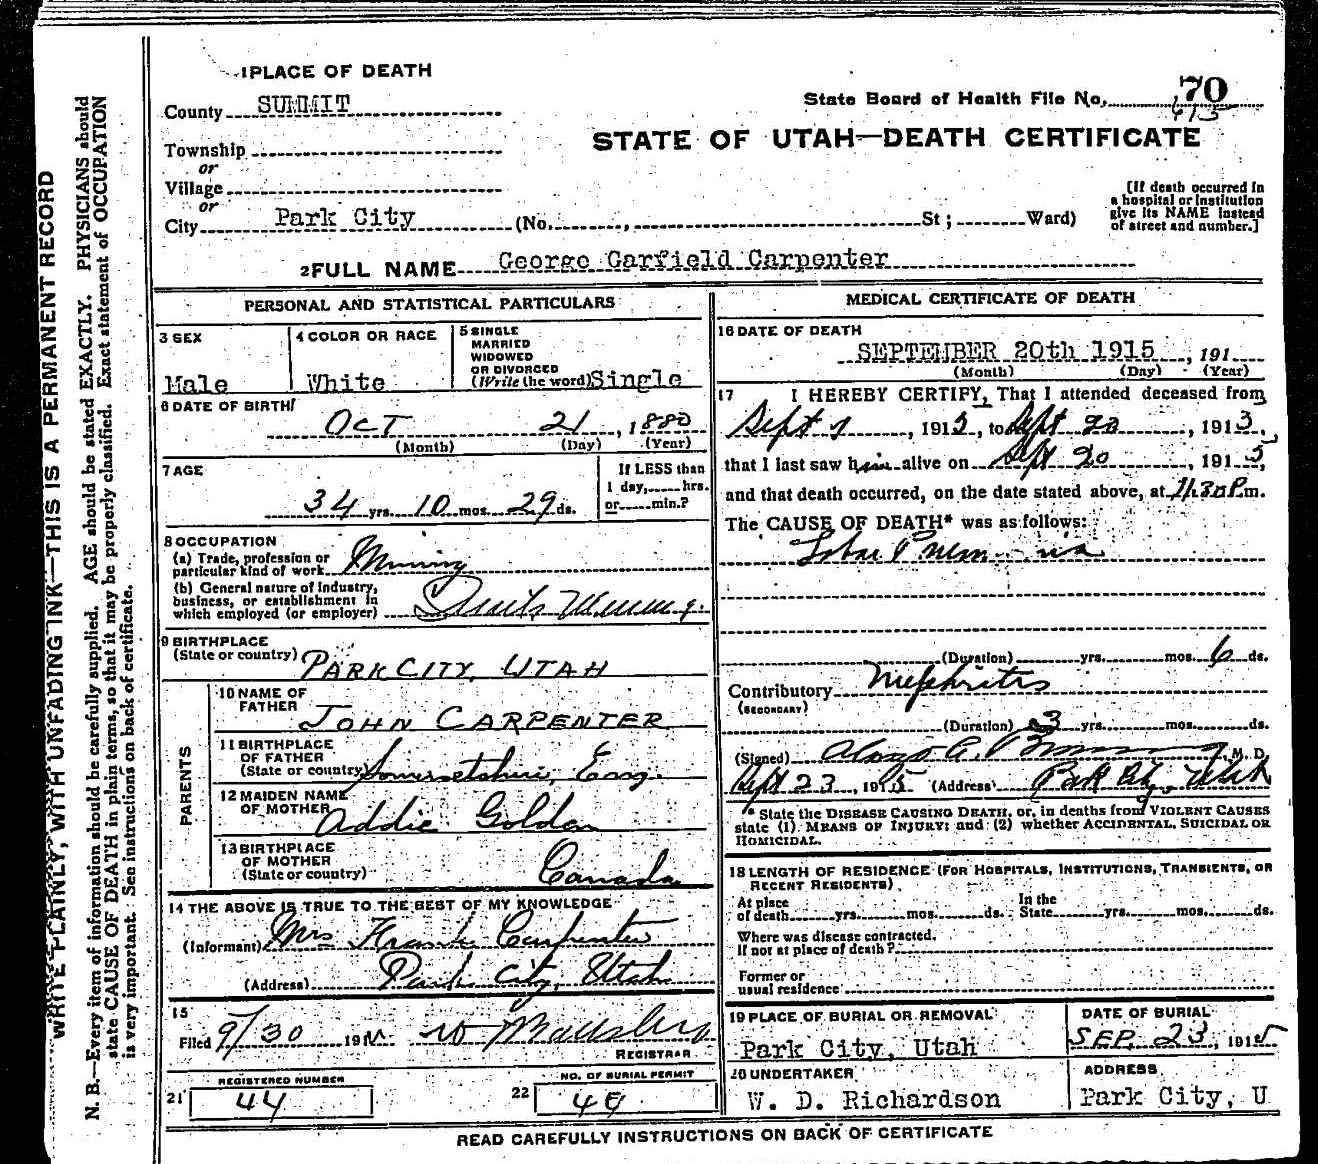 1 PLACE OF DEATH
County SUMMIT
State Board of Health File No. 70
615
STATE OF UTAH—DEATH CERTIFICATE
Township
or
Village
or
City Park City (No. , St ; Ward)
[If death occurred in
a hospital or institution
give its NAME instead
of street and number.]
2 FULL NAME George Garfield Carpenter
PERSONAL AND STATISTICAL PARTICULARS
3 SEX
Male
4 COLOR OR RACE
White
5 SINGLE
MARRIED
WIDOWED
OR DIVORCED
(Write the word) Single
6 DATE OF BIRTH
OCT 21, 1880
(Month) (Day) (Year)
7 AGE
34 yrs. 10 mos. 29 ds.
If LESS than
1 day, hrs.
or min.?
8 OCCUPATION
(a) Trade, profession or
particular kind of work Mining
(b) General nature of industry,
business, or establishment in
which employed (or employer)
9 BIRTHPLACE
(State or country) PARK CITY, UTAH
PARENTS
10 NAME OF
FATHER JOHN CARPENTER
11 BIRTHPLACE
OF FATHER
(State or country) Somersetshire, Eng.
12 MAIDEN NAME
OF MOTHER Addie Golden
13 BIRTHPLACE
OF MOTHER
(State or country) Canada
14 THE ABOVE IS TRUE TO THE BEST OF MY KNOWLEDGE
(Informant) Mrs Frank Carpenter
(Address) Park City, Utah
15
Filed 9/30 191
REGISTRAR
REGISTERED NUMBER
21 44
NO. OF BURIAL PERMIT
22 49
MEDICAL CERTIFICATE OF DEATH
16 DATE OF DEATH
SEPTEMBER 20th 1915, 191
(Month) (Day) (Year)
17 I HEREBY CERTIFY, That I attended deceased from
Sept , 1915, to Sept 20, 1915,
that I last saw him alive on Sept 20, 1915,
and that death occurred, on the date stated above, at 11.30 P.m.
The CAUSE OF DEATH* was as follows:
Lobar Pneumonia
(Duration) yrs. mos. 6 ds.
Contributory Nephritis
(SECONDARY)
(Duration) 3 yrs. mos. ds.
(Signed) Alonzo A. M. D.
Sept 23, 1915 (Address) Park City, Utah
* State the DISEASE CAUSING DEATH, or, in deaths from VIOLENT CAUSES
state (1) MEANS OF INJURY; and (2) whether ACCIDENTAL, SUICIDAL OR
HOMICIDAL.
18 LENGTH OF RESIDENCE (FOR HOSPITALS, INSTITUTIONS, TRANSIENTS, OR
RECENT RESIDENTS)
At place
of death yrs. mos. ds.
In the
State yrs. mos. ds.
Where was disease contracted.
If not at place of death?
Former or
usual residence
19 PLACE OF BURIAL OR REMOVAL
Park City, Utah
DATE OF BURIAL
SEP. 23, 1915
20 UNDERTAKER
W. D. Richardson
ADDRESS
Park City, U
READ CAREFULLY INSTRUCTIONS ON BACK OF CERTIFICATE
WRITE PLAINLY, WITH UNFADING INK—THIS IS A PERMANENT RECORD
N. B.—Every item of information should be carefully supplied. AGE should be stated EXACTLY. PHYSICIANS should
state CAUSE OF DEATH in plain terms, so that it may be properly classified. Exact statement of OCCUPATION
is very important. See instructions on back of certificate.